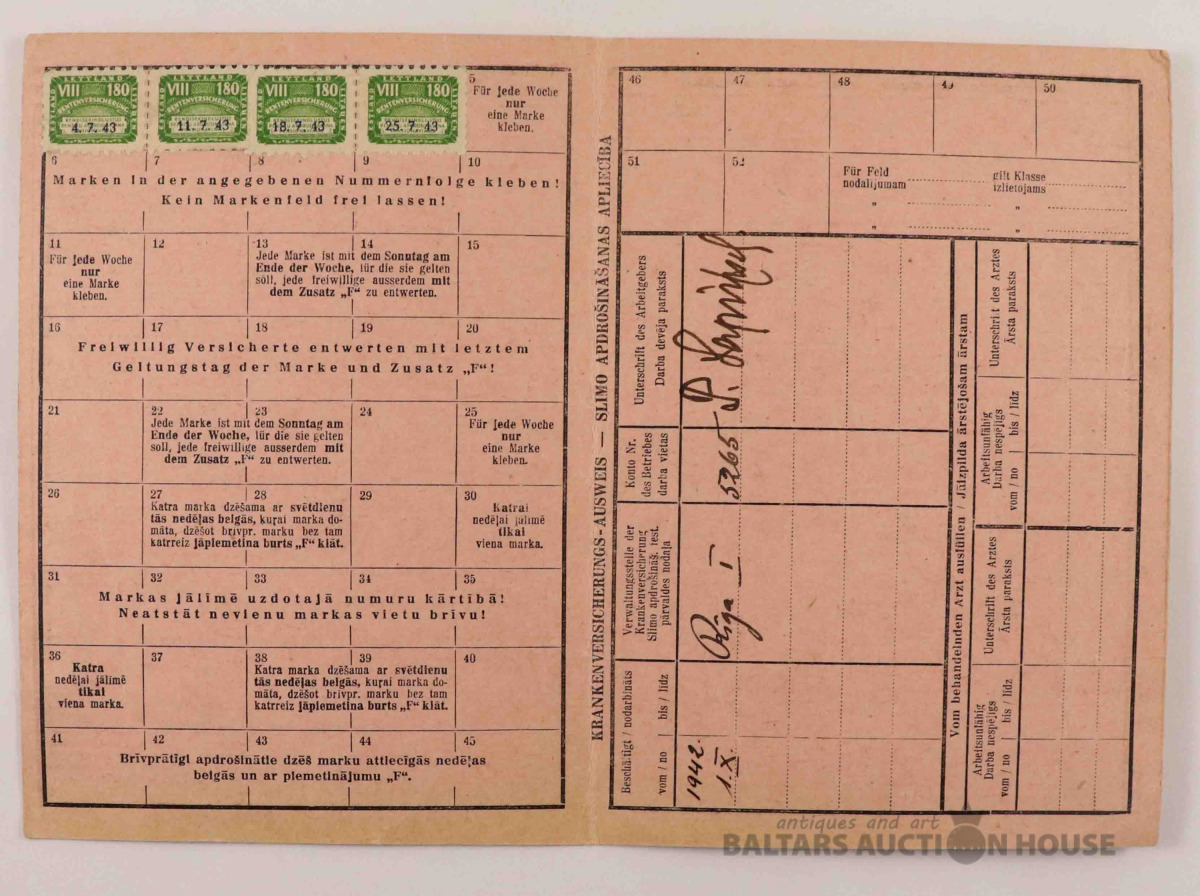 LETTLAND
VIII 180
RENTENVERSICHERUNG
4. 7. 43
LETTLAND
VIII 180
RENTENVERSICHERUNG
11. 7. 43
LETTLAND
VIII 180
RENTENVERSICHERUNG
18. 7. 43
LETTLAND
VIII 180
RENTENVERSICHERUNG
25. 7. 43
5
Für jede Woche
nur
eine Marke
kleben.
6 7 8 9 10
Marken in der angegebenen Nummernfolge kleben!
Kein Markenfeld frei lassen!
11
Für jede Woche
nur
eine Marke
kleben.
12
13 14
Jede Marke ist mit dem Sonntag am
Ende der Woche, für die sie gelten
soll, jede freiwillige ausserdem mit
dem Zusatz „F“ zu entwerten.
15
16 17 18 19 20
Freiwillig Versicherte entwerten mit letztem
Geltungstag der Marke und Zusatz „F“!
21
22 23
Jede Marke ist mit dem Sonntag am
Ende der Woche, für die sie gelten
soll, jede freiwillige ausserdem mit
dem Zusatz „F“ zu entwerten.
24
25
Für jede Woche
nur
eine Marke
kleben.
26
27 28
Katra marka dzēšama ar svētdienu
tās nedēļas beigās, kuŗai marka do-
māta, dzēšot brīvpr. marku bez tam
katrreiz jāpiemetina burts „F“ klāt.
29
30
Katrai
nedēļai jālīmē
tikai
viena marka.
31 32 33 34 35
Markas jālīmē uzdotajā numuru kārtībā!
Neatstāt nevienu markas vietu brīvu!
36
Katra
nedēļai jālīmē
tikai
viena marka.
37
38 39
Katra marka dzēšama ar svētdienu
tās nedēļas beigās, kuŗai marka do-
māta, dzēšot brīvpr. marku bez tam
katrreiz jāpiemetina burts „F“ klāt.
40
41 42 43 44 45
Brīvprātīgi apdrošinātie dzēš marku attiecīgās nedēļas
beigās un ar piemetinājumu „F“.
KRANKENVERSICHERUNGS-AUSWEIS — SLIMO APDROŠINĀŠANAS APLIECĪBA
46 47 48 49 50
51 52
Für Feld gilt Klasse
nodalījumam izlietojams
" "
"
Unterschrift des Arbeitgebers
Darba devēja paraksts
Konto Nr.
des Betriebes
darba vietas
5265
Verwaltungsstelle der
Krankenversicherung
Slimo apdrošināš. iest.
pārvaldes nodaļa
Rīga I
Beschäftigt / nodarbināts
vom / no bis / līdz
1942.
1.X.
Vom behandelnden Arzt ausfüllen / Jāizpilda ārstējošam ārstam
Unterschrift des Arztes
Ārsta paraksts
Arbeitsunfähig
Darba nespējīgs
vom / no bis / līdz
Unterschrift des Arztes
Ārsta paraksts
Arbeitsunfähig
Darba nespējīgs
vom / no bis / līdz
antiques and art
BALTARS AUCTION HOUSE